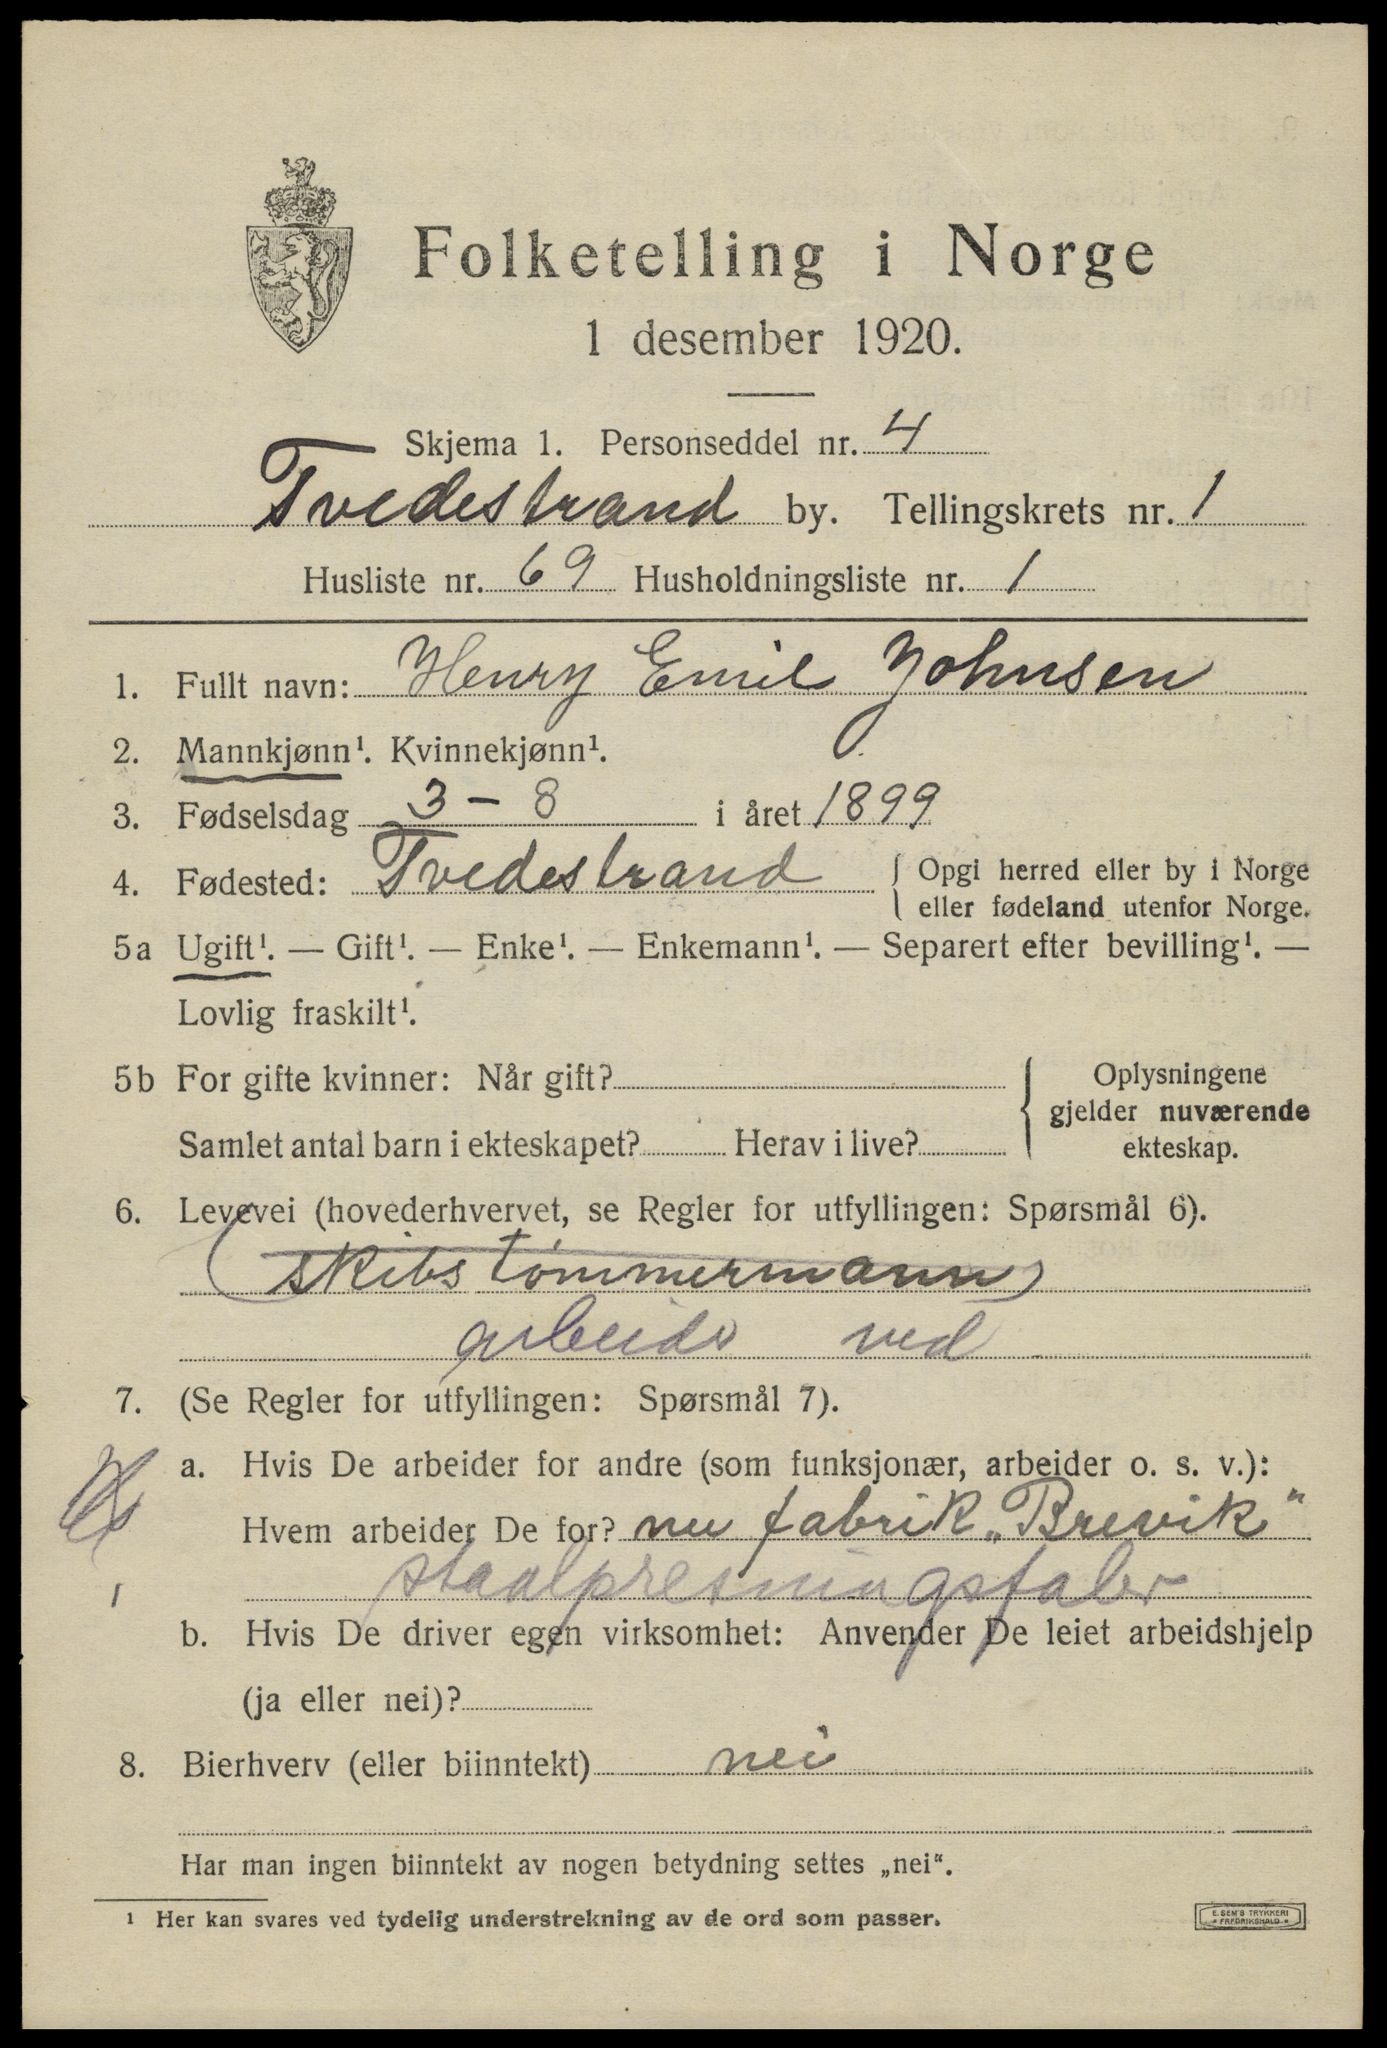 Folketelling i Norge
1 desember 1920.
Skjema 1. Personseddel nr. 4
Tvedestrand by. Tellingskrets nr. 1
Husliste nr. 69 Husholdningsliste nr. 1
1. Fullt navn: Henry Emil Johnsen
2. Mannkjønn¹. Kvinnekjønn¹.
3. Fødselsdag 3 – 8 i året 1899
4. Fødested: Tvedestrand { Opgi herred eller by i Norge
eller fødeland utenfor Norge.
5a Ugift¹. — Gift¹. — Enke¹. — Enkemann¹. — Separert efter bevilling¹. —
Lovlig fraskilt¹.
5b For gifte kvinner: Når gift? { Oplysningene
gjelder nuværende
Samlet antal barn i ekteskapet? Herav i live? ekteskap.
6. Levevei (hovederhvervet, se Regler for utfyllingen: Spørsmål 6).
(skibstømmermann)
arbeider ved
7. (Se Regler for utfyllingen: Spørsmål 7).
a. Hvis De arbeider for andre (som funksjonær, arbeider o. s. v.):
Hvem arbeider De for? nu fabrik „Brevik"
1 staalpresningsfabr
b. Hvis De driver egen virksomhet: Anvender De leiet arbeidshjelp
(ja eller nei)?
8. Bierhverv (eller biinntekt) nei
Har man ingen biinntekt av nogen betydning settes „nei“.
¹ Her kan svares ved tydelig understrekning av de ord som passer.
E. SEM'S TRYKKERI
FREDRIKSHALD